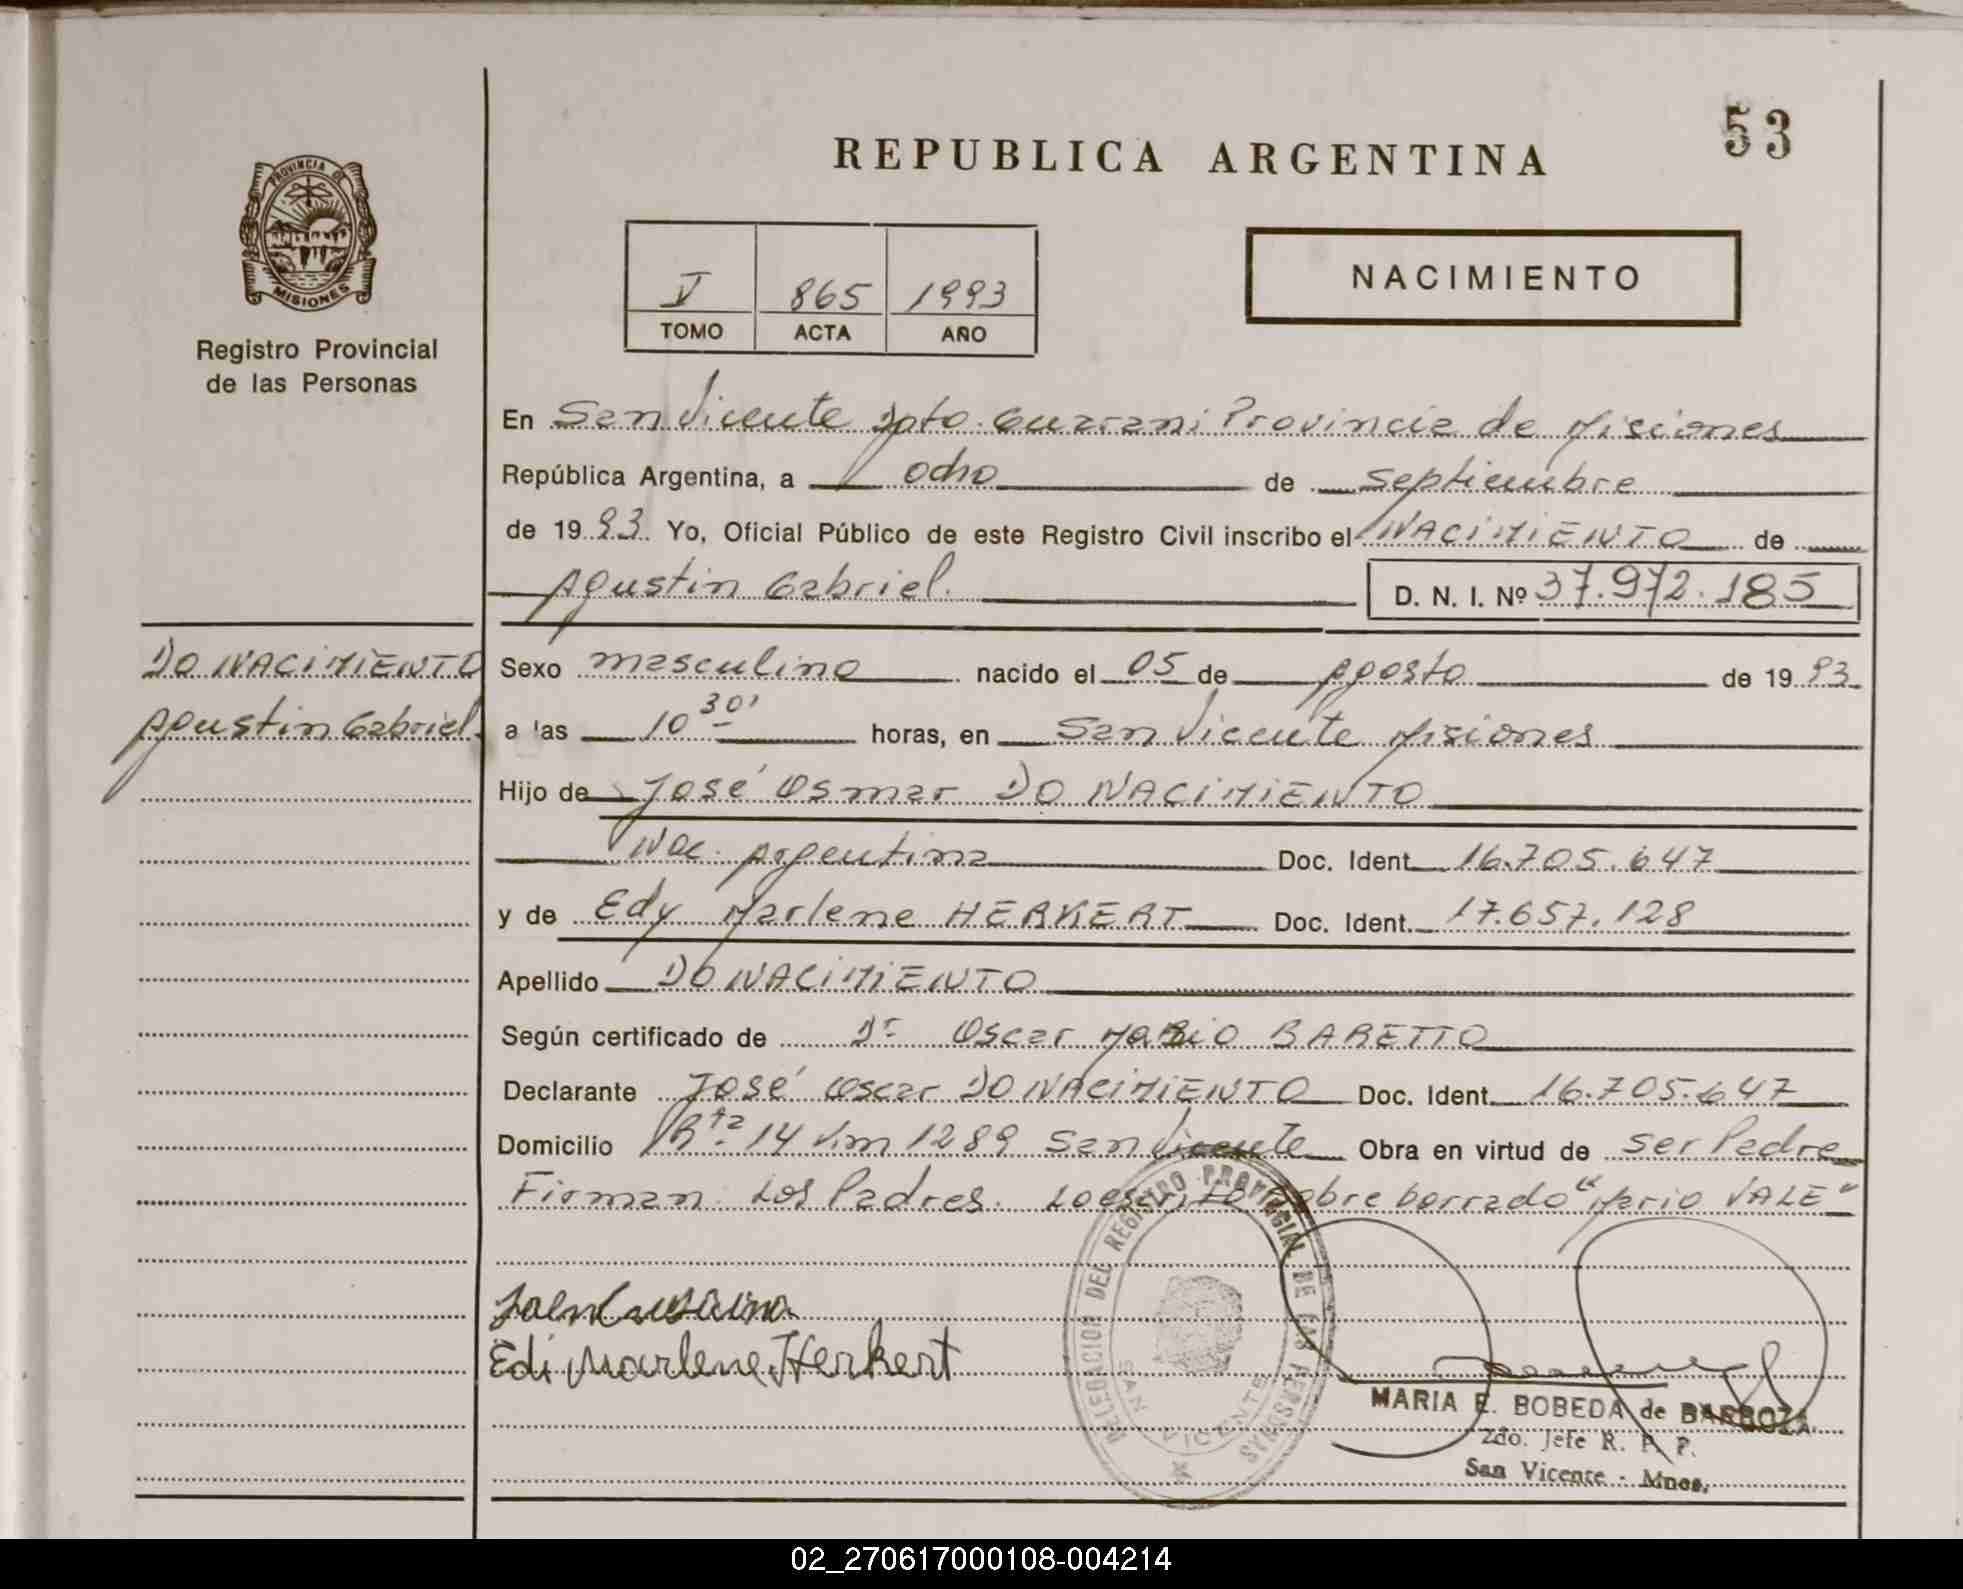 53
REPUBLICA ARGENTINA
PROVINCIA DE
MISIONES
Registro Provincial
de las Personas
V 865 1993
TOMO ACTA AÑO
NACIMIENTO
En San Vicente Dpto. Guarani Provincia de Misiones
República Argentina, a ocho de septiembre
de 1993. Yo, Oficial Público de este Registro Civil inscribo el NACIMIENTO de
Agustin Gabriel. D. N. I. Nº 37.972.185
DO NACIMIENTO
Agustin Gabriel.
Sexo masculino nacido el 05 de Agosto de 1993
a las 10 30' horas, en San Vicente Misiones
Hijo de José Osmar DO NACIMIENTO
Nac. Argentina Doc. Ident. 16.705.647
y de Edy Marlene HERKERT Doc. Ident. 17.657.128
Apellido DO NACIMIENTO
Según certificado de Dr Oscar MARIO BARETTO
Declarante José Oscar DO NACIMIENTO Doc. Ident. 16.705.647
Domicilio Rta 14 Km 1289 San Vicente Obra en virtud de ser Padre
Firman Los Padres. Lo escrito sobre borrado "Mario VALE"
Edi Marlene Herkert
DELEGACION DEL REGISTRO PROVINCIAL DE LAS PERSONAS
SAN VICENTE
MARIA E. BOBEDA de BARBOZA
2do. Jefe R. P. P.
San Vicente - Mnes.
02_270617000108-004214